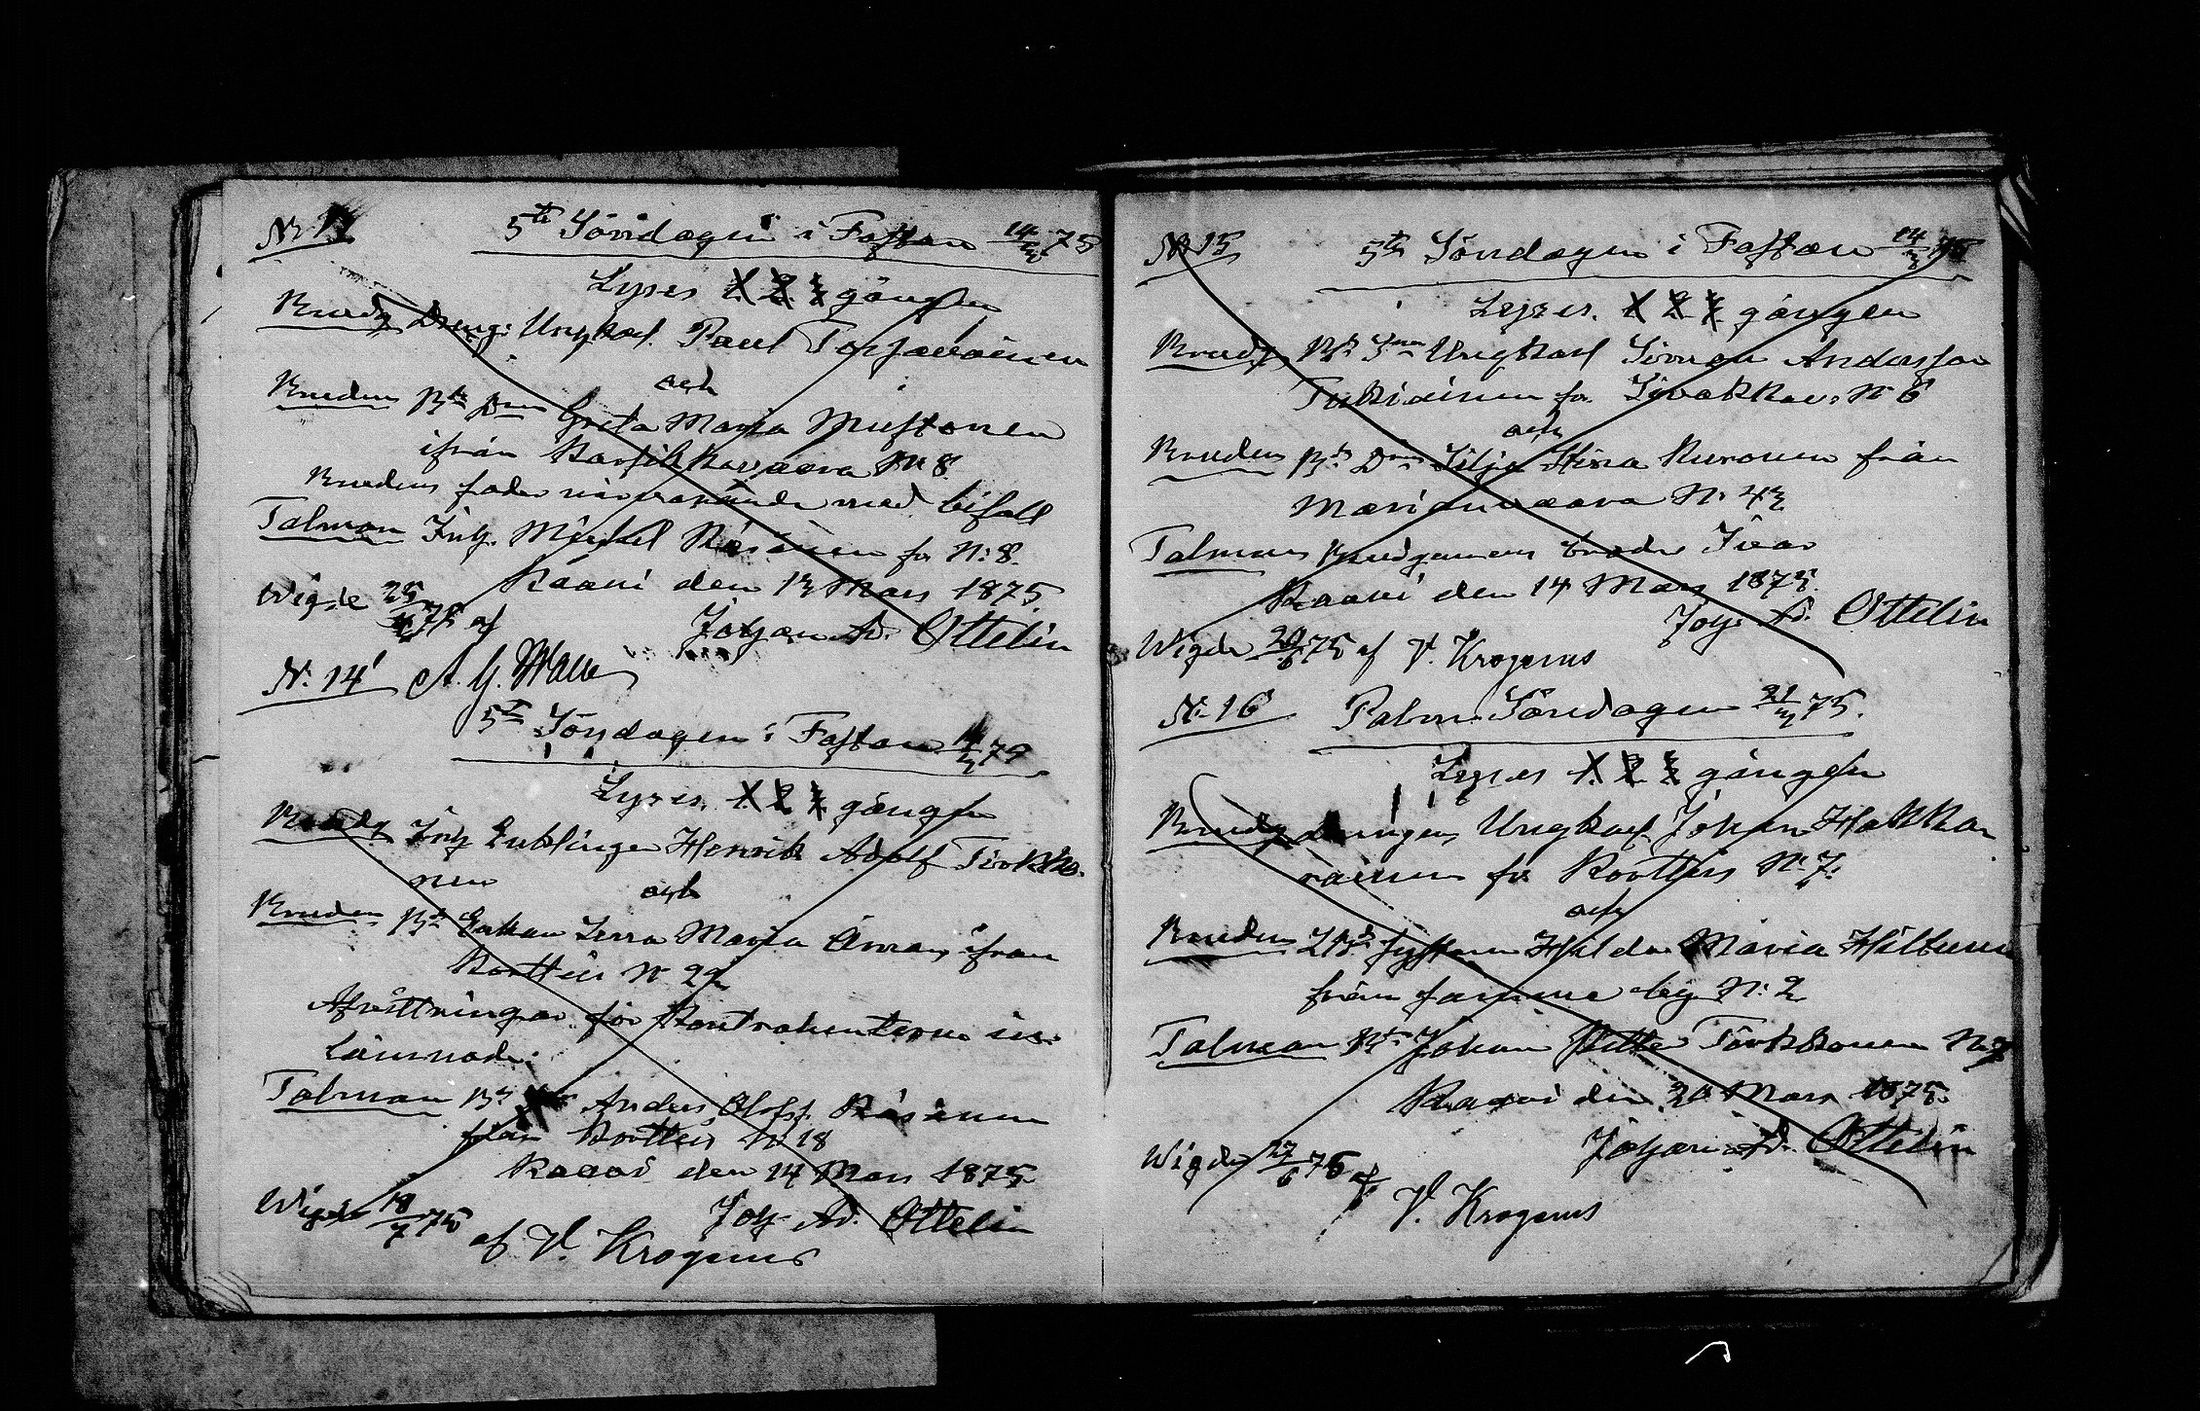 5te Söndagen i Fastan 14/3 75
Lyses 1 2 3 gången
Brudg Dreng: Ungkarl. Paul Torjavainen
och
Bruden Bde Dr Greta Maria Mustonen
ifrån Karsikkovaara N: 8.
Brudens fader närvarande med bifall
Talman Inh. Michel Räsänen fr N: 8.
Kaavi den 13 Mars 1875
Wigde 25/ 75 af
Johan Ad. Ottelin
A. G. Walle
N. 14
5te Söndagen i Fastan 14/3 75
Lyses. 1 2 3 gången
Brudg Inh Enklingen Henrik Adolf Tirkko-
nen och
Bruden Bd Enkan Maria ifrån
Kortteis N 22
Afvittringar för Kontrahenterne in-
lämnade.
Talman Bd Anders Olofss. Räsänen
från Kortteis N: 18
Kaavi den 14 Mars 1875
Joh. Ad. Ottelin
Wigde 18/7 75 af V. Krogerus
N 15 5te Söndagen i Fastan 14/3 75
Lyses. 1 2 3 gången
Brudg Bd Son Ungkarl Simon Andersson
Tukiainen fr. N: 6
och
Bruden Bds Dr Silja Stina från
Marianvaara N: 43
Talman Brudgummens broder Ivar
Kaavi den 14 Mars 1875.
Joh. Ad. Ottelin
Wigde 20/6 75 af V. Krogerus
N: 16 Palm Söndagen 21/3 75.
Lyses 1. 2 3 gången
Brudg drengen Ungkarl Johan Hakka-
rainen fr Kortteis N: 7.
och
Bruden Hilda Maria Hiltunen
från samma by N: 2
Talman Bd Johan Petter Tirkkonen N: 7
Kaavi den 20 Mars 1875.
Johan Ad. Ottelin
Wigde 27/6 75 af
V. Krogerus